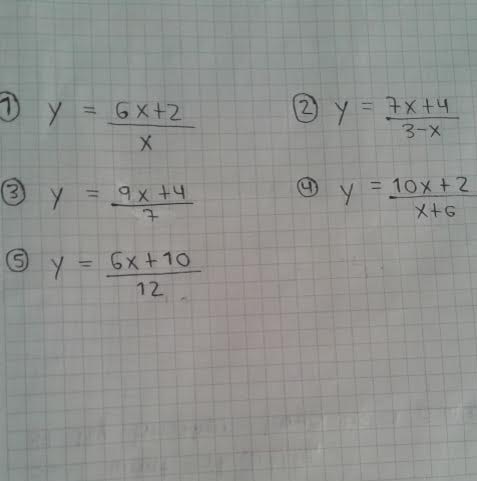 ① y = 6x+2 / x
② y = 7x+4 / 3-x
③ y = 9x+4 / 7
④ y = 10x+2 / x+6
⑤ y = 6x+10 / 12